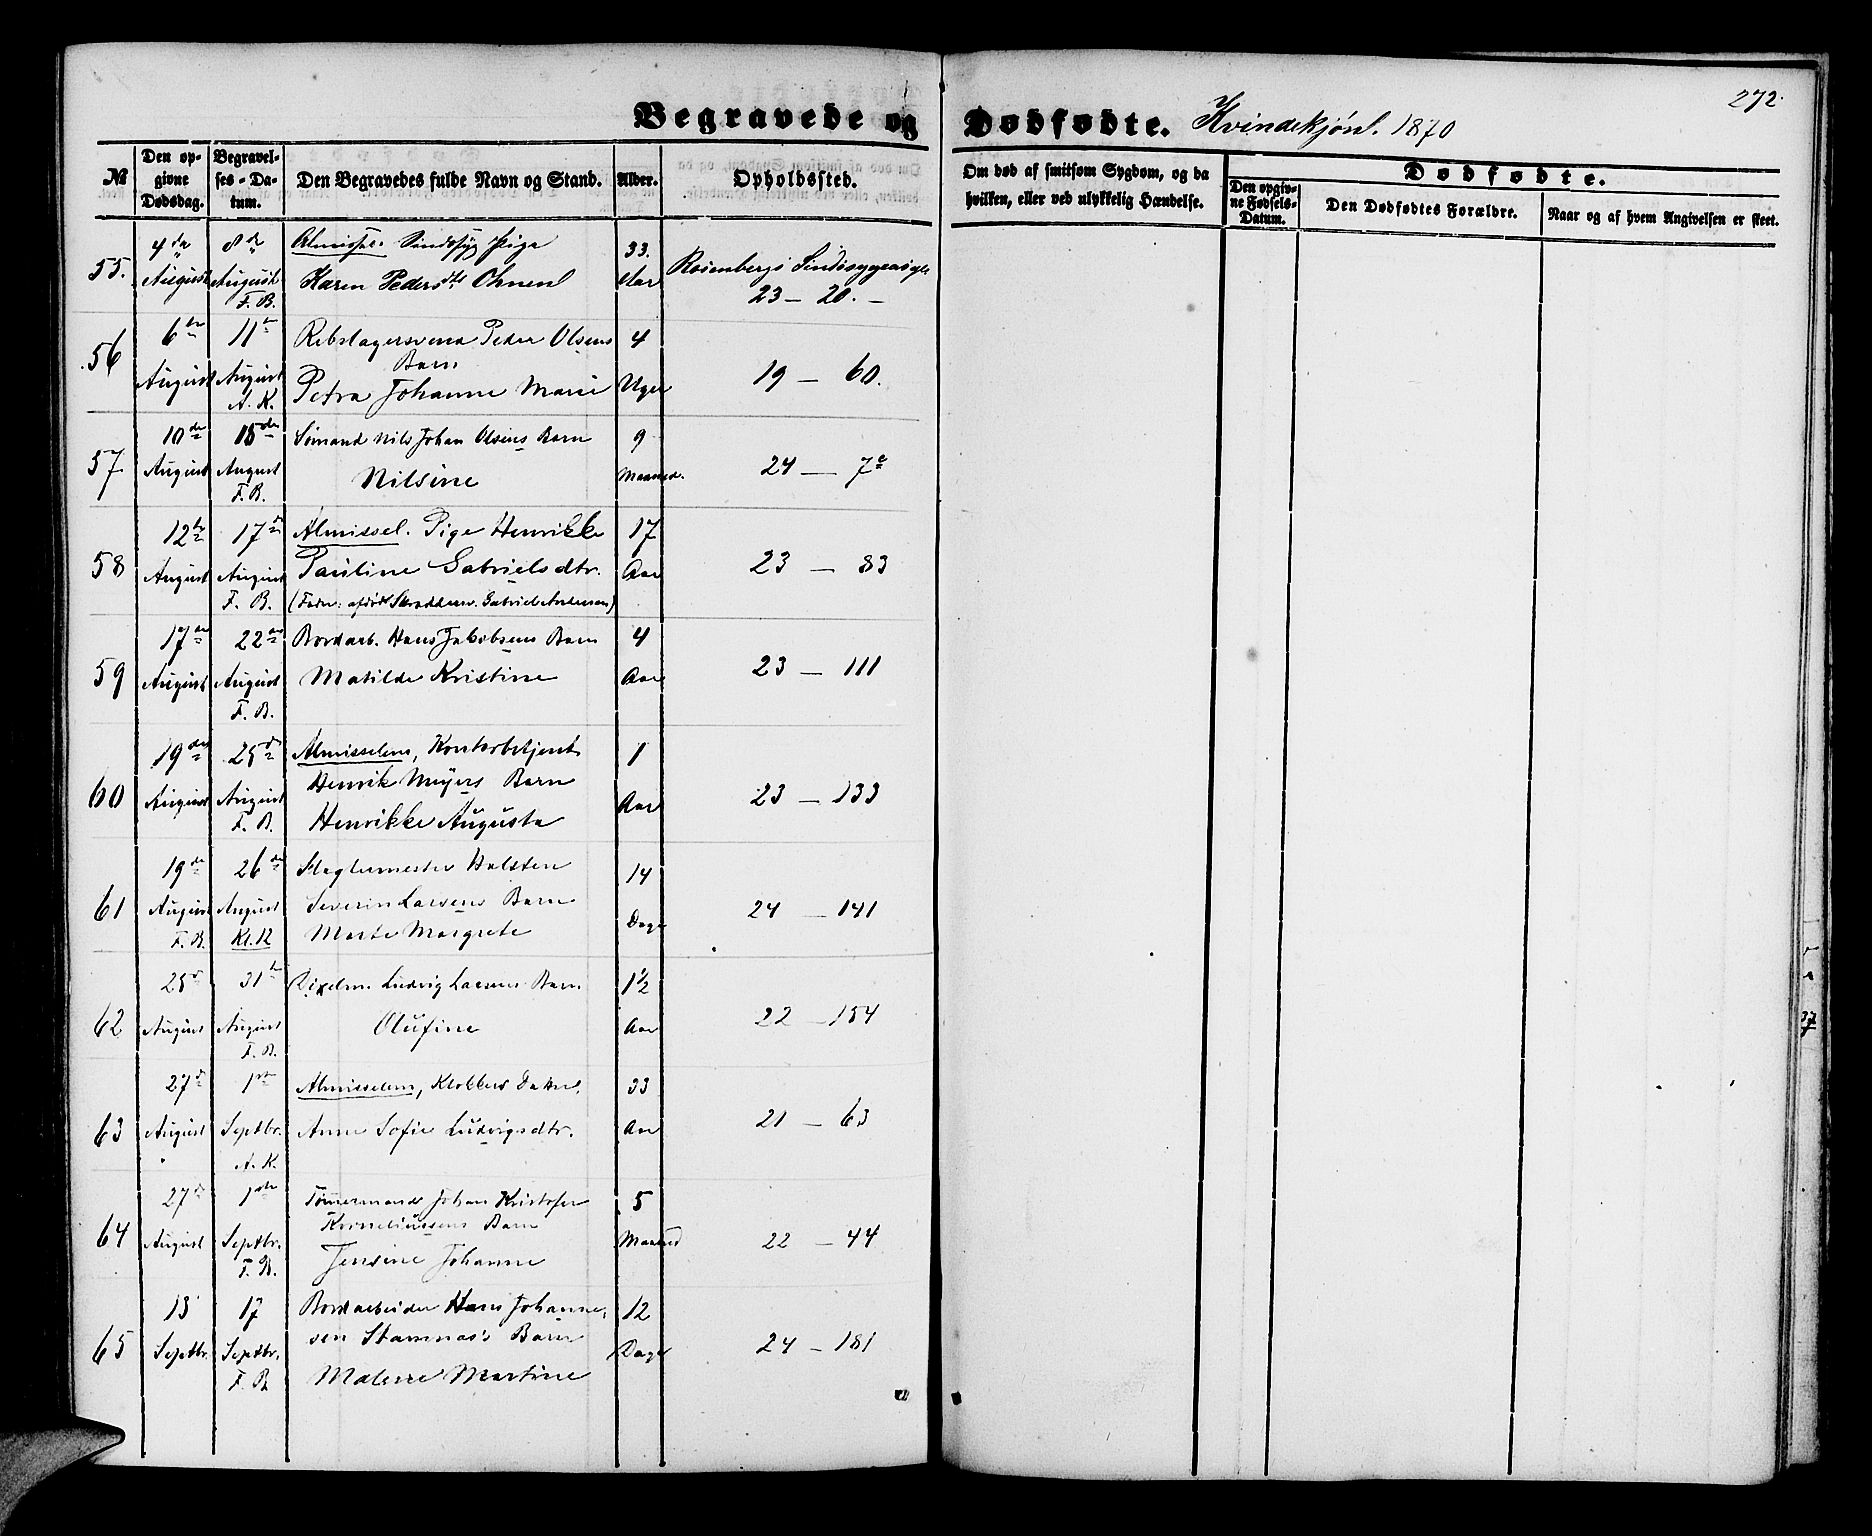 272.
Begravede og Dødfødte. Kvindekjønl. 1870
№
Den opgivne Dødsdag.
Begravelses-Datum.
Den Begravedes fulde Navn og Stand.
Alder.
Opholdssted.
Om død af smitsom Sygdom, og da hvilken, eller ved ulykkelig Hændelse.
Dødfødte.
Den opgivne Fødsels-Datum.
Den Dødfødtes Forældre.
Naar og af hvem Angivelsen er skeet.
55. 4de August 8de August F. B.
Sindssyg Pige
Karen Pedersdtr
33. Aar
Rosenbergs
23 – 20. –
56 6te August 11te August A. K.
Rebslagersvend Peder Olsens
Barn
Petra Johanne Marie
4 Uger
19 – 60.
57 10de August 15de August F. B.
Sømand Nils Johan Olsens Barn
Nilsine
9 Maaned.
24 – 7a
58 12te August 17de August F. B.
Almissel. Pige Henrikke
Pauline Gabrielsdtr.
(Fader: afdøde Skræddersv. Gabriel Andersen)
17 Aar
23 – 83
59 17de August 22de August F. B.
Bordarb. Hans Jakobsens Barn
Matilde Kristine
4 Aar
23 – 111
60 19de August 25de August F. B.
Almisselem, Kontorbetjent
Henrik Meyers Barn
Henrikke Augusta
1 Aar
23 – 133
61 19de August F. B. 26de August Kl. 12
Slagtermester Halsten
Severin Larsens Barn
Marte Margrete
14 Dage
24 – 141
62 25de August 31te August F. B.
Ludvig Larsens Barn
Olufine
1 1/2 Aar
22 – 154
63 27de August 1ste Septbr. A. K.
Almisselem, Klokkers Datter,
Anne Sofie Ludvigsdtr.
33 Aar
21 – 63
64 27de August 1ste Septbr. F. B.
Tømmermand Johan Kristofer
Korneliussens Barn
Jensine Johanne
5 Maaned
22 – 44
65 13 Septbr. 17 Septbr. F. B.
Bordarbeider Hans Johanne-
sen Stamnas's Barn
Malene Martine
12 Dage
24 – 181